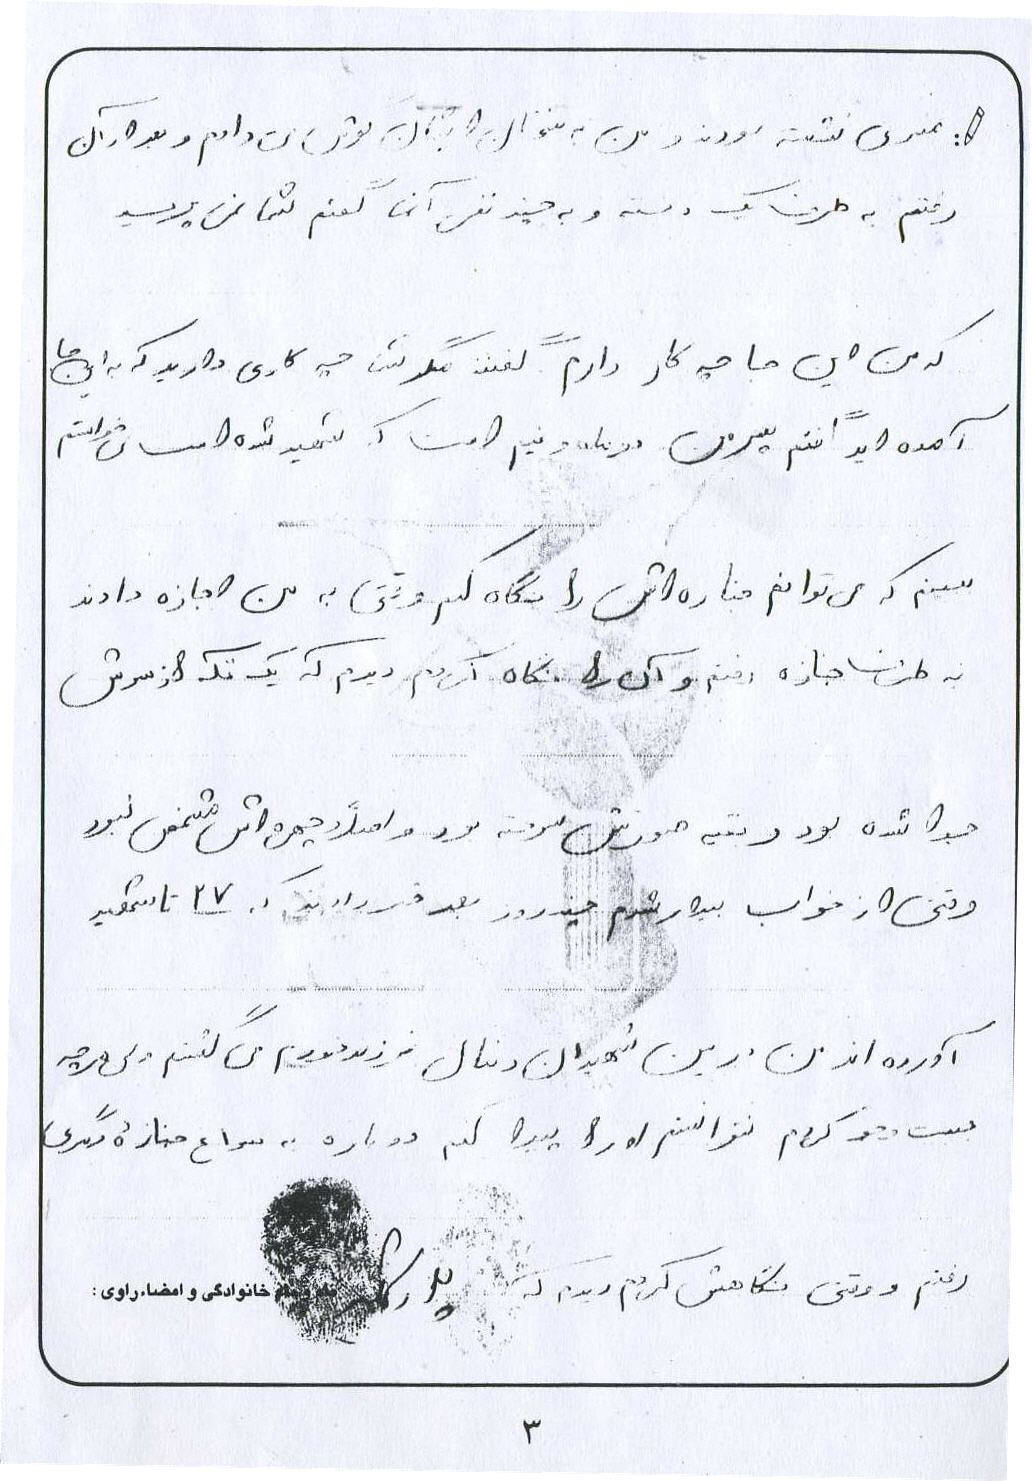 منبری نشسته بودند و من به سخنان ایشان گوش می دادم و بعد از آن
رفتم به طرف یک دسته و به چند نفر آنها گفتم شما نمی پرسید
که من این جا چه کار دارم گفتند مگر شما چه کاری دارید که به این جا
آمده اید گفتم پسر من دو ماه و نیم است که شهید شده است می خواستم
ببینم که می توانم جنازه اش را نگاه کنم وقتی به من اجازه دادند
به طرف جنازه رفتم و آن را نگاه کردم دیدم که یک تکه از سرش
جدا شده بود و بقیه صورتش سوخته بود و اصلاً چهره اش مشخص نبود
وقتی از خواب بیدار شدم چند روز بعد خبر دادند که ۲۷ تا شهید
آورده اند من در بین شهیدان دنبال فرزند خودم می گشتم ولی هر چه
جست و جو کردم نتوانستم او را پیدا کنم دوباره به سراغ جنازهٔ دیگری
رفتم و وقتی نگاهش کردم دیدم که
نام و نام خانوادگی و امضاء راوی :
۳